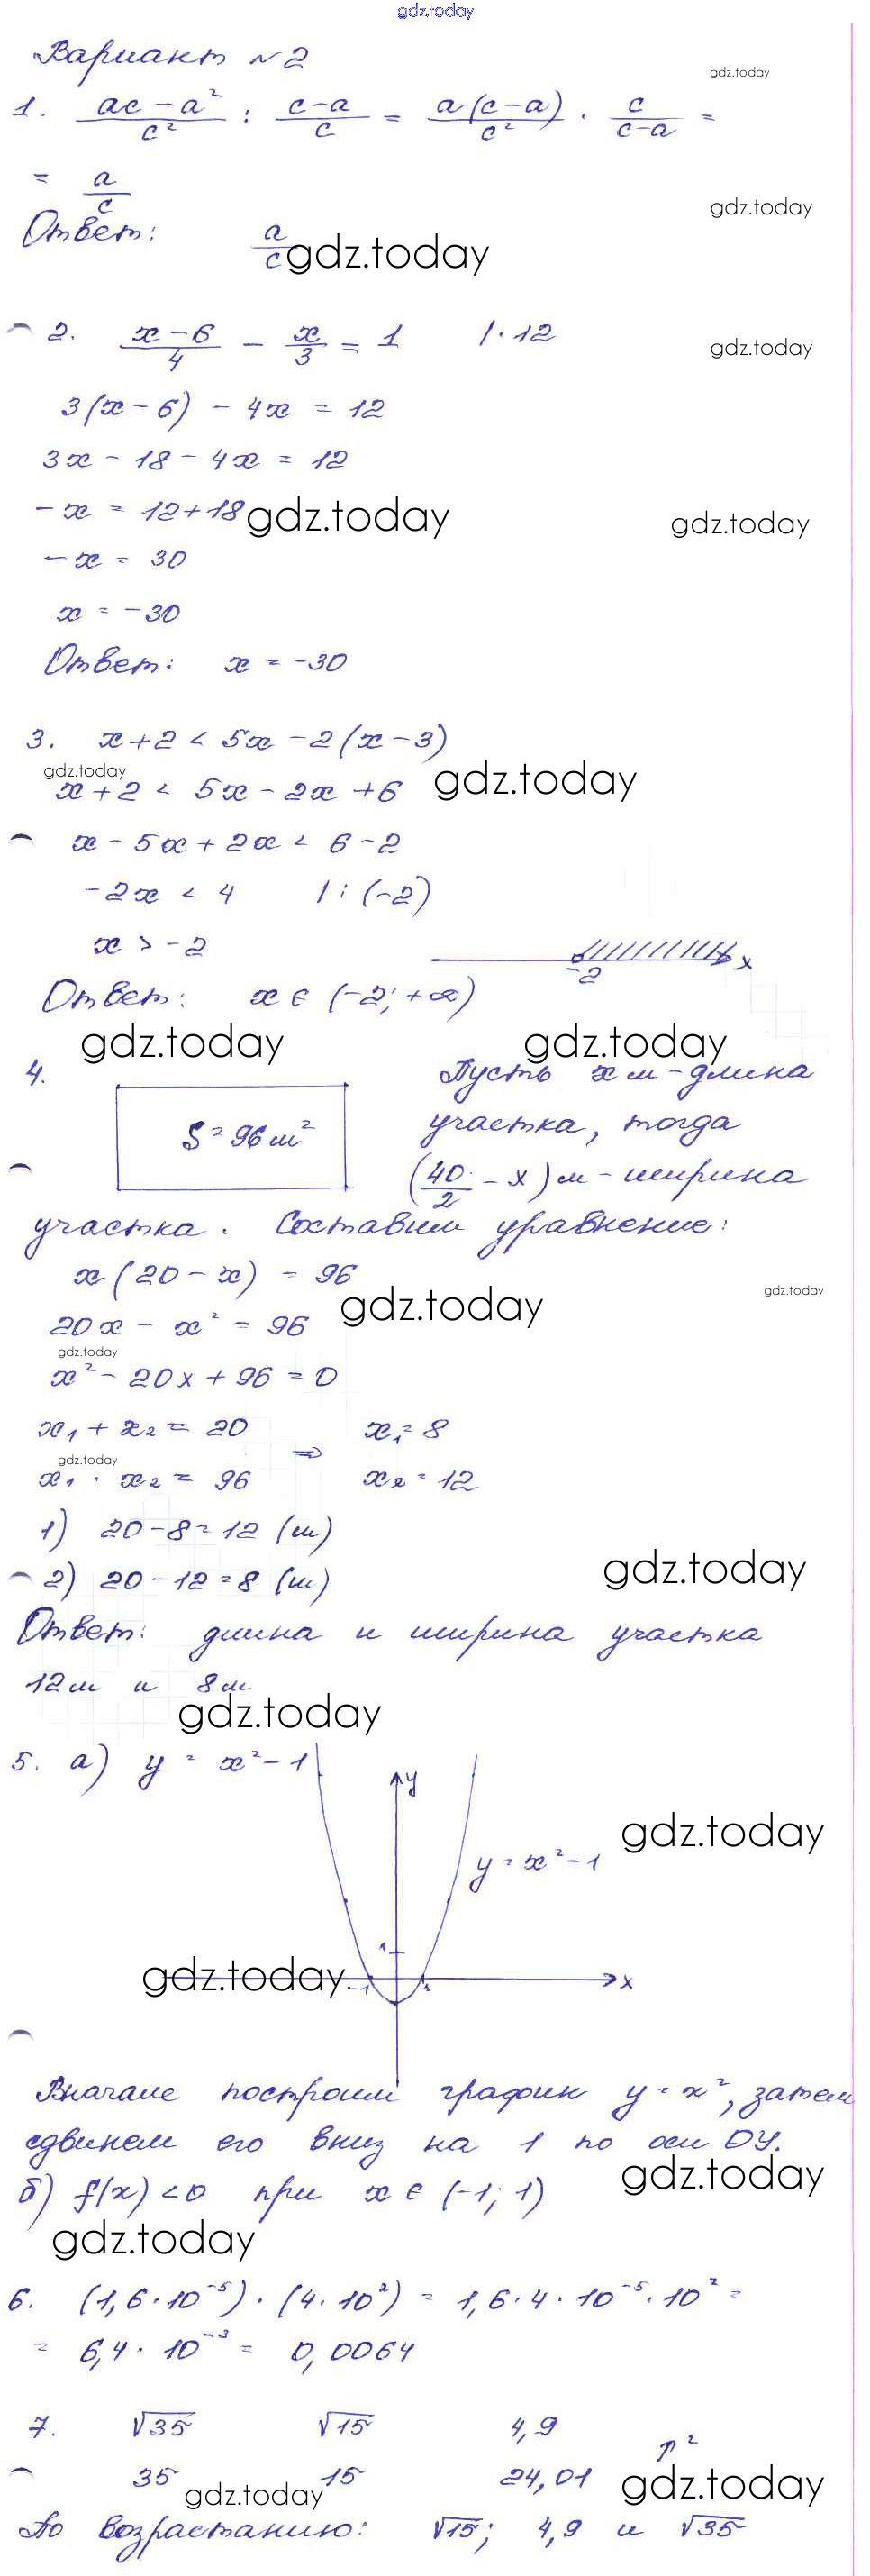 gdz.today
Вариант №2
gdz.today
1. (ac - a²)/c² : (c-a)/c = a(c-a)/c² · c/(c-a) =
= a/c
gdz.today
Ответ: a/c
gdz.today
2. (x-6)/4 - x/3 = 1 |·12
gdz.today
3(x-6) - 4x = 12
3x - 18 - 4x = 12
-x = 12+18
gdz.today
gdz.today
-x = 30
x = -30
Ответ: x = -30
3. x+2 < 5x - 2(x-3)
gdz.today
gdz.today
x+2 < 5x - 2x + 6
x - 5x + 2x < 6 - 2
-2x < 4 |:(-2)
x > -2
-2 x
Ответ: x ∈ (-2; +∞)
gdz.today
gdz.today
4. Пусть x м - длина
S = 96 м² участка, тогда
(40/2 - x) м - ширина
участка. Составим уравнение:
x(20 - x) = 96
gdz.today
gdz.today
20x - x² = 96
gdz.today
x² - 20x + 96 = 0
x₁ + x₂ = 20 ⇒ x₁ = 8
gdz.today
x₁ · x₂ = 96 x₂ = 12
1) 20 - 8 = 12 (м)
gdz.today
2) 20 - 12 = 8 (м)
Ответ: длина и ширина участка
12 м и 8 м
gdz.today
5. а) y = x² - 1
y
gdz.today
y = x² - 1
1
gdz.today
-1 1 x
Вначале построим график y = x², затем
сдвинем его вниз на 1 по оси OY.
gdz.today
б) f(x) < 0 при x ∈ (-1; 1)
gdz.today
6. (1,6·10⁻⁵)·(4·10²) = 1,6·4·10⁻⁵·10² =
= 6,4·10⁻³ = 0,0064
7. √35 √15 4,9
↑²
35 15 24,01
gdz.today
gdz.today
По возрастанию: √15; 4,9 и √35